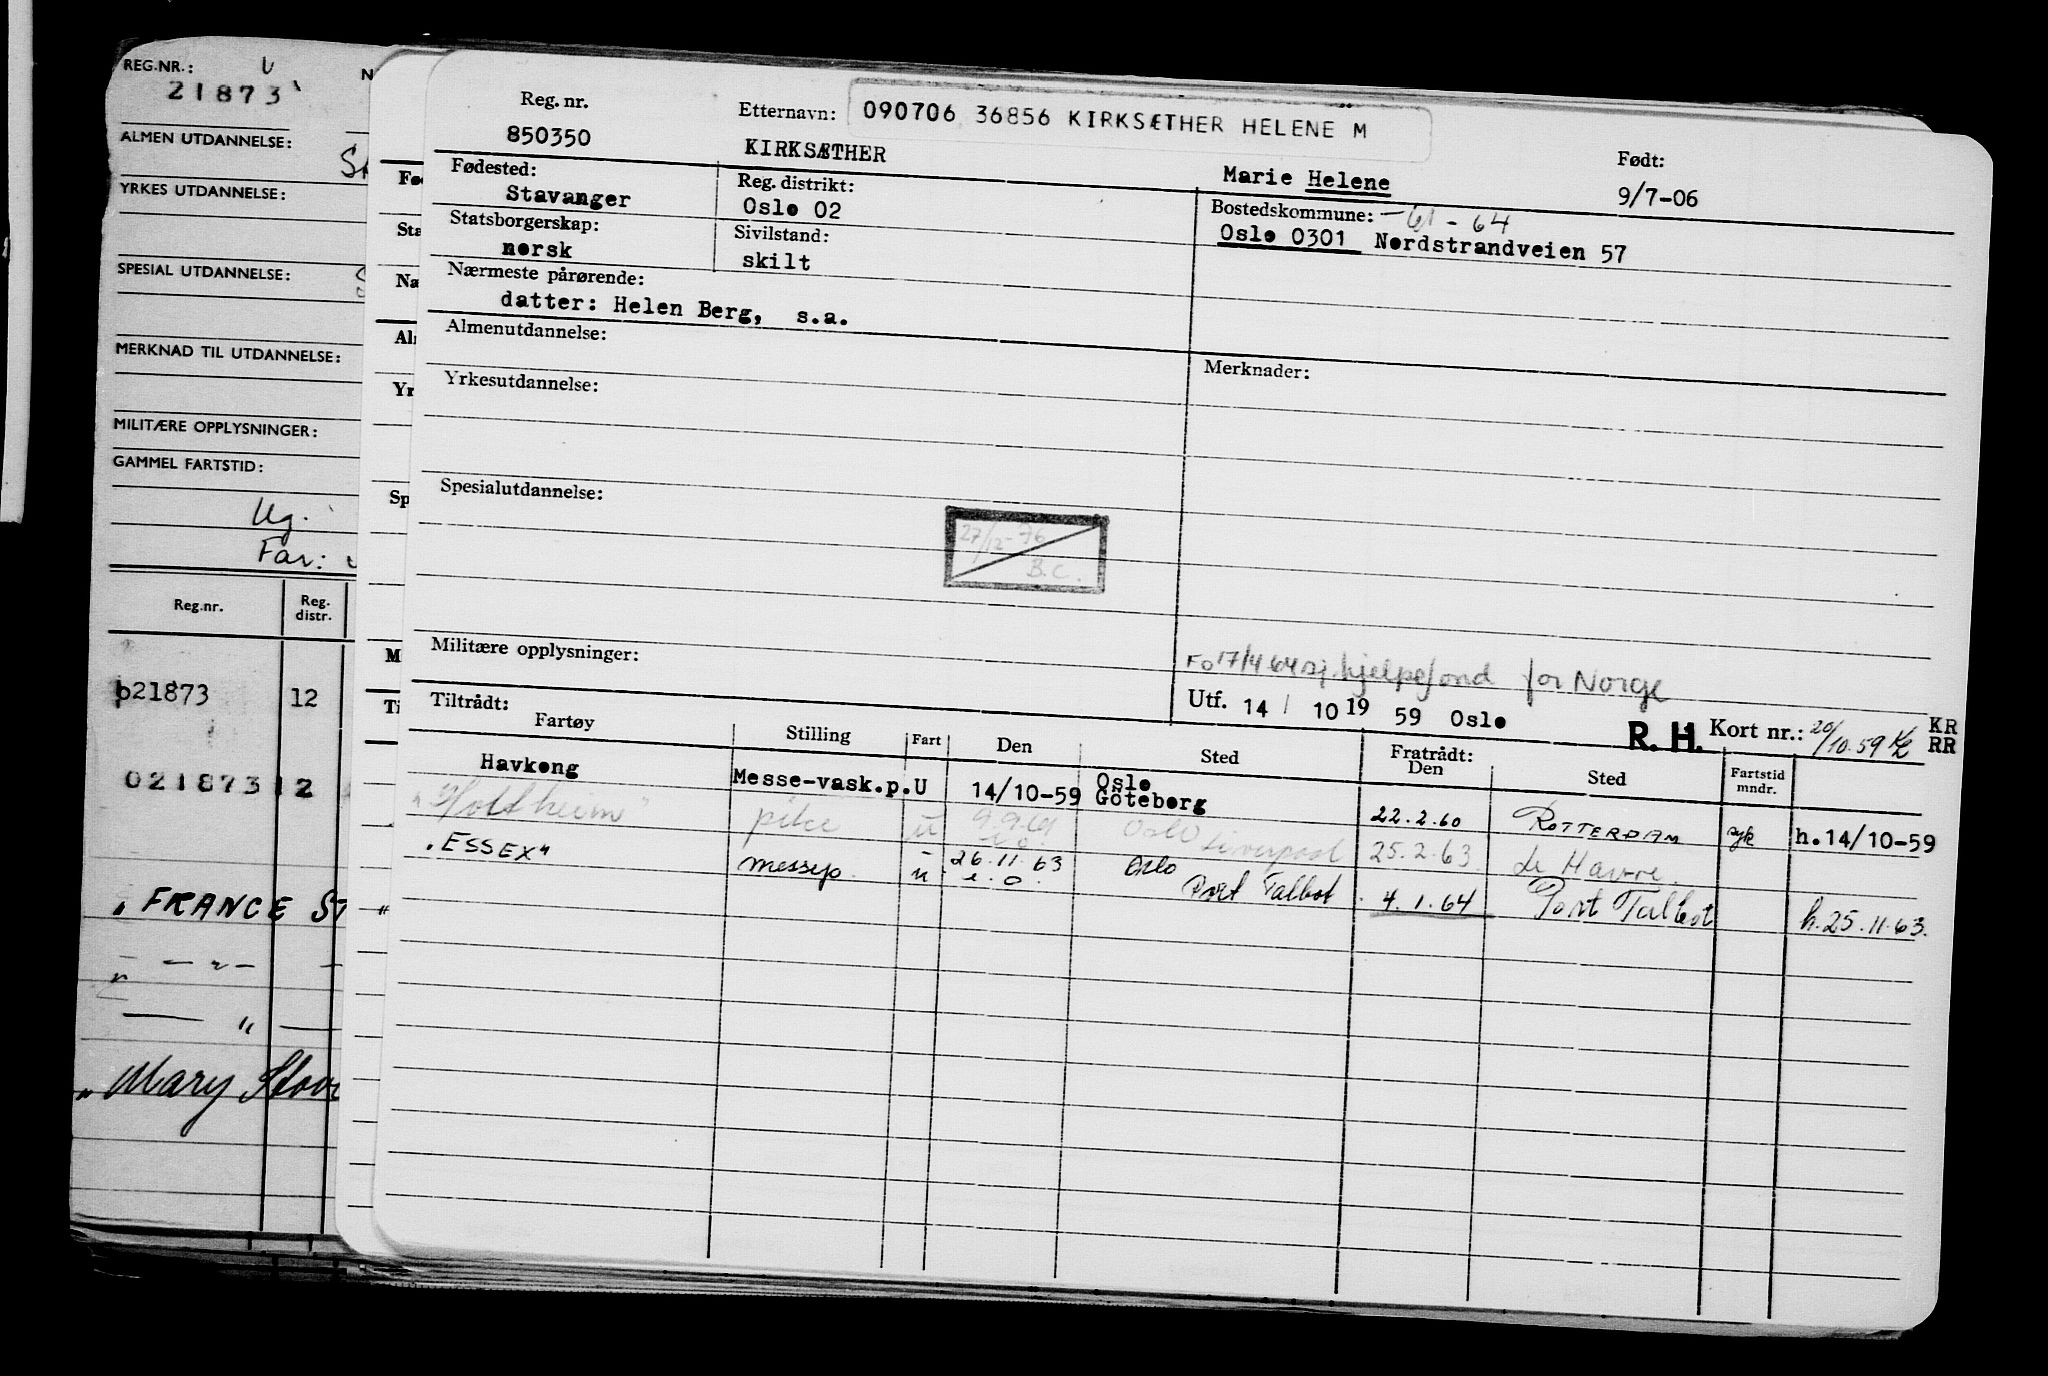 REG.NR.:
21873
ALMEN UTDANNELSE:
YRKES UTDANNELSE:
SPESIAL UTDANNELSE:
MERKNAD TIL UTDANNELSE:
MILITÆRE OPPLYSNINGER:
GAMMEL FARTSTID:
Ug.
Far:
Reg.nr. Reg. distr.
b21873 12
021873 12
"FRANCE ST
"Mary Stove
Reg. nr. Etternavn: 090706 36856 KIRKSÆTHER HELENE M
850350 KIRKSÆTHER Marie Helene Født: 9/7-06
Fødested: Reg. distrikt: Bostedskommune: -61-64
Stavanger Oslo 02 Oslo 0301 Nordstrandveien 57
Statsborgerskap: Sivilstand:
norsk skilt
Nærmeste pårørende:
datter: Helen Berg, s.a.
Almenutdannelse: Merknader:
Yrkesutdannelse:
Spesialutdannelse:
27/12-76
B.C.
Militære opplysninger: Fo 17/4 64 sj. hjelpefond for Norge
Utf. 14/ 10 19 59 Oslo R. H. Kort nr.: 20/10.59 KR RR
Tiltrådt: Fratrådt:
Fartøy Stilling Fart Den Sted Den Sted Fartstid mndr.
Havkong Messe-vask.p. U 14/10-59 Oslo Göteborg 22.2.60 ROTTERDAM syk h.14/10-59
pike u Oslo Liverpool 25.2.63 Le Havre.
"ESSEX" messep. u 26.11.63 Oslo Port Talbot 4.1.64 Port Talbot h.25.11.63.